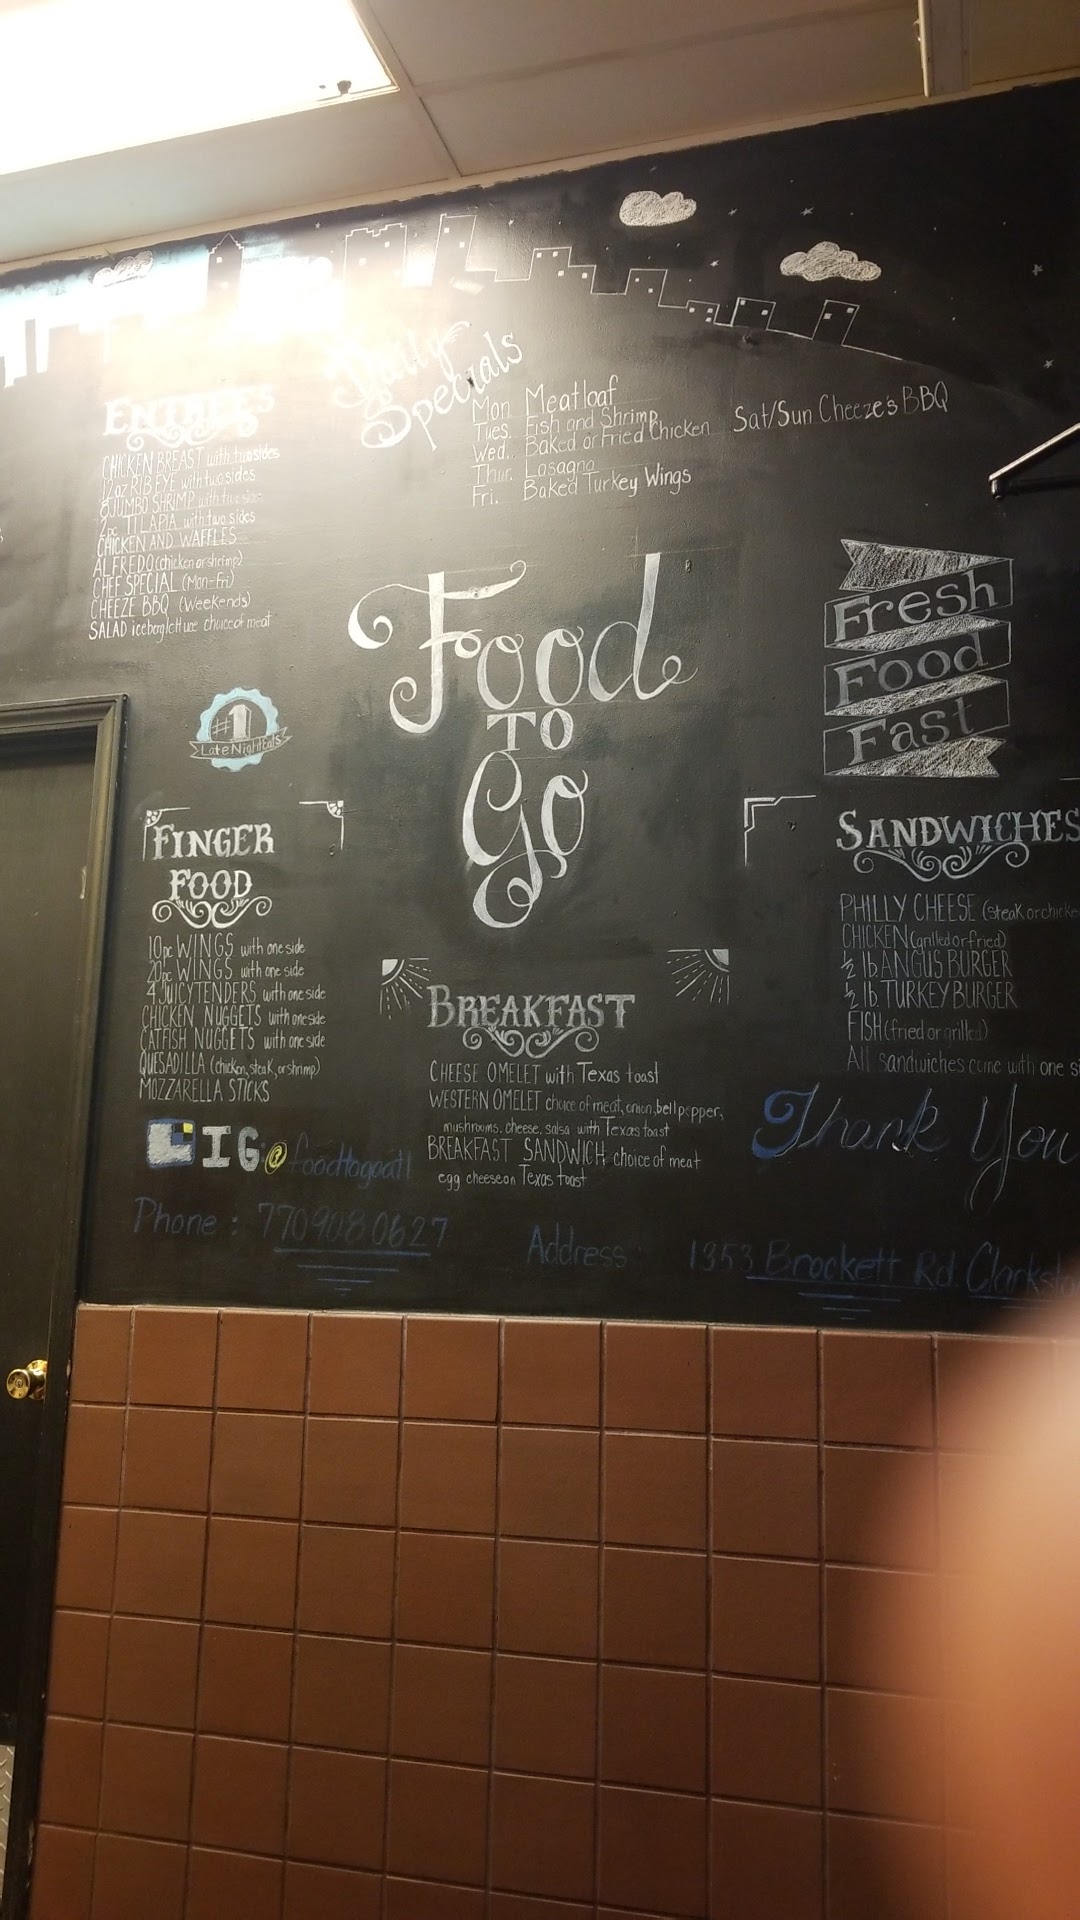 Daily
Specials
Mon Meatloaf
Tues. Fish and Shrimp
Wed. Baked or Fried Chicken
Thur. Lasagna
Fri. Baked Turkey Wings
Sat/Sun Cheeze's BBQ
ENTREES
CHICKEN BREAST with two sides
12oz RIBEYE with two sides
8 JUMBO SHRIMP with two sides
2pc TILAPIA with two sides
CHICKEN AND WAFFLES
ALFREDO (chicken or shrimp)
CHEF SPECIAL (Mon-Fri)
CHEEZE BBQ (Weekends)
SALAD iceberg lettuce choice of meat
Food
TO
Go
Fresh
Food
Fast
#1
Late Night Eats
FINGER
FOOD
10pc WINGS with one side
20pc WINGS with one side
4 JUICY TENDERS with one side
CHICKEN NUGGETS with one side
CATFISH NUGGETS with one side
QUESADILLA (chicken, steak, or shrimp)
MOZZARELLA STICKS
BREAKFAST
CHEESE OMELET with Texas toast
WESTERN OMELET choice of meat, onion, bell pepper,
mushrooms, cheese, salsa with Texas toast
BREAKFAST SANDWICH choice of meat
egg cheese on Texas toast
SANDWICHES
PHILLY CHEESE (steak or chicke
CHICKEN (grilled or fried)
½ lb ANGUS BURGER
½ lb. TURKEY BURGER
FISH (fried or grilled)
All sandwiches come with one si
Thank You
IG @foodtogoatl
Phone : 7709080627
Address 1353 Brockett Rd. Clarksto